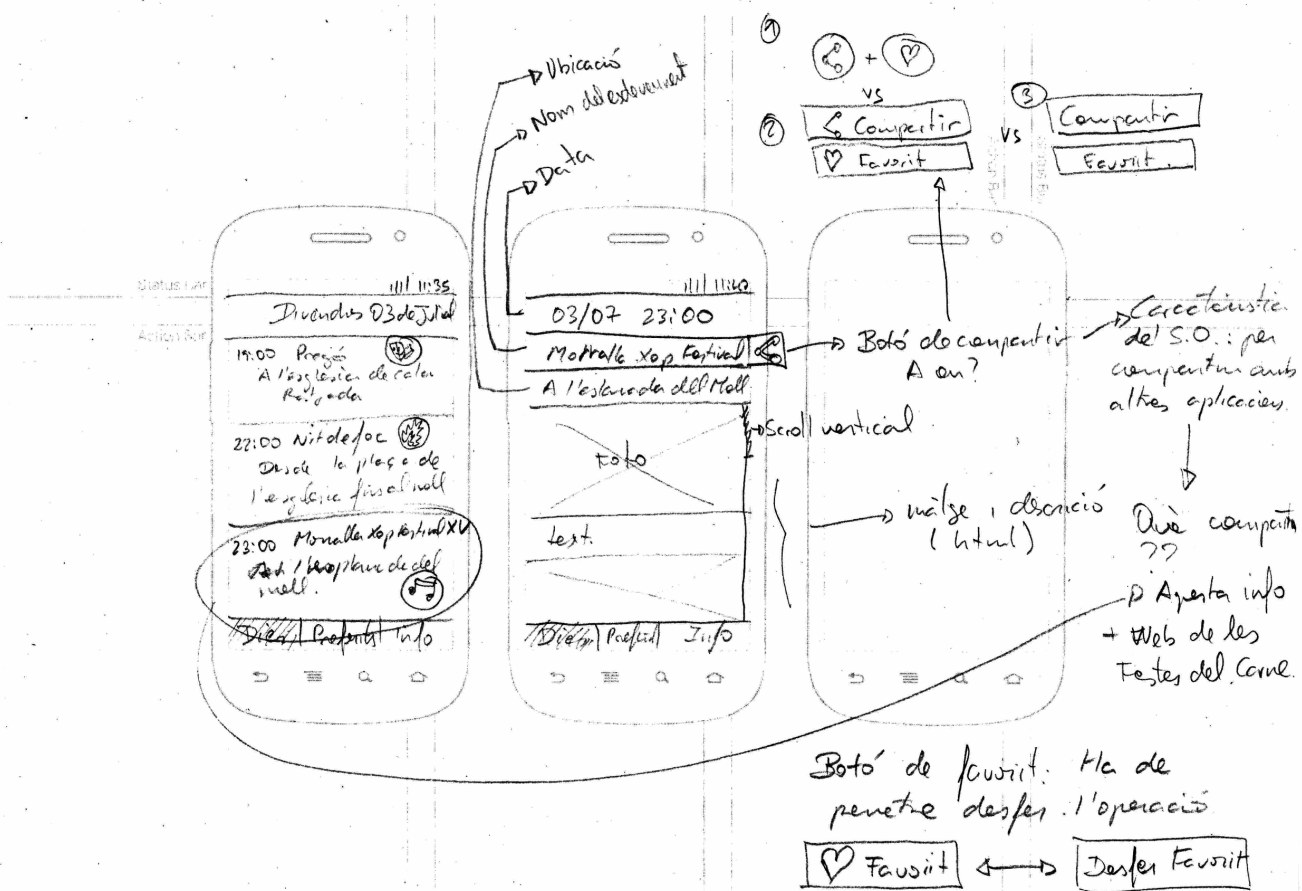 Ubicació
Nom del esdeveniment
Data
1
+
vs
2
Compartir
Favorit
vs
3
Compartir
Favorit
Status Bar
Action Bar
11:35
Divendres 03 de Juliol
19:00 Pregó
A l'església de cala
Ratjada
22:00 Nit de foc
Desde la plaça de
l'església fins al moll
23:00 Morralla Xop Festival XV
l'esplanada del
moll.
Dies Preferits Info
11:40
03/07 23:00
Morralla Xop Festival
A l'esplanada del Moll
Foto
text.
Info
Scroll vertical
Botó de compartir
A on?
Característica
del S.O.: per
compartir amb
altres aplicacions.
Què compartir
??
Aquesta info
+ Web de les
Festes del Carme.
imatge i descripció
(html)
Botó de favorit: Ha de
permetre desfer l'operació
Favorit
Desfer Favorit